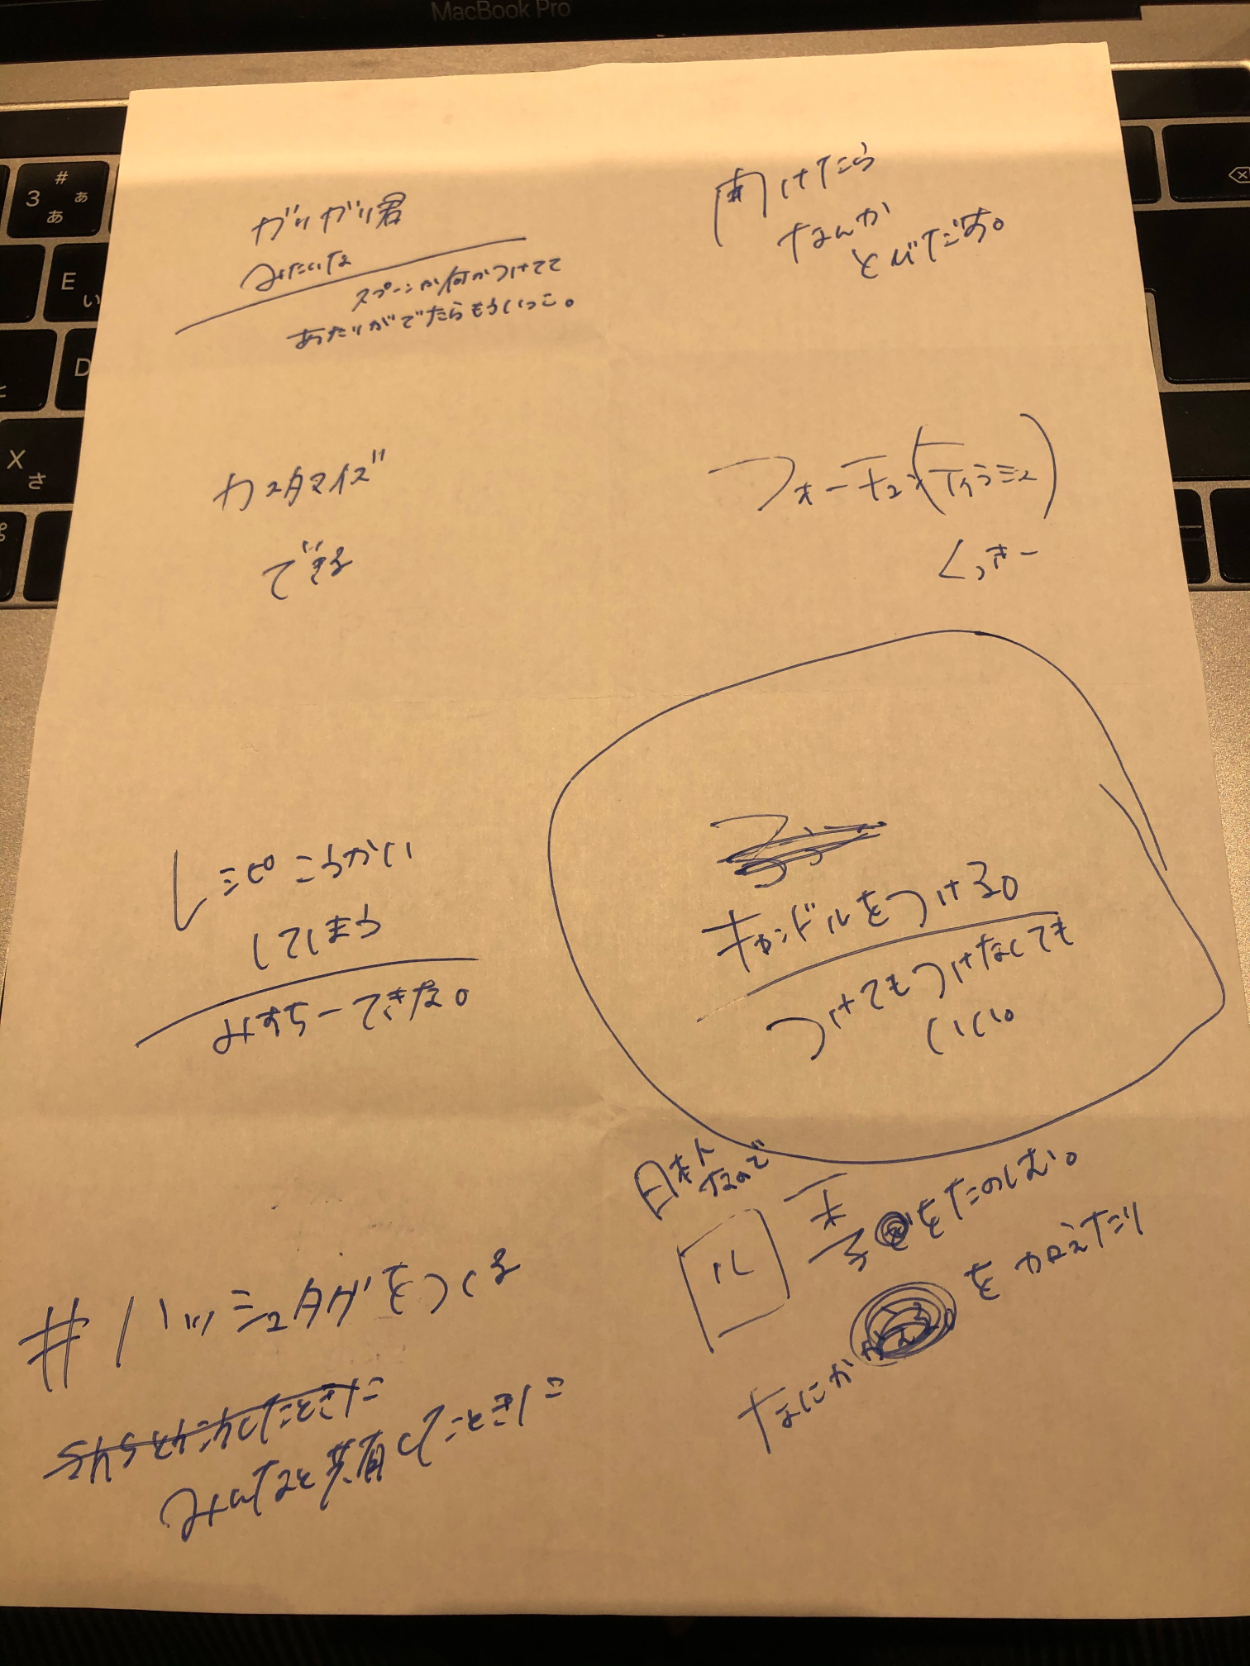 MacBook Pro
# 3 ぁ あ
E い
D
X さ
ガリガリ君
みたいな
スプーンか何かつけてて
あたりがでたらもういっこ。
開けたら
なんか
とびだす。
カスタマイズ
できる
フォーチュン(ティラミス)
くっきー
レシピこうかい
してしまう
みすちーできな。
キャンドルをつける。
つけてもつけなくても
いい。
日本人
なので
ル
季
をたのしむ。
なにか
を加えたり
#ハッシュタグをつくる
みんなと共有したときに